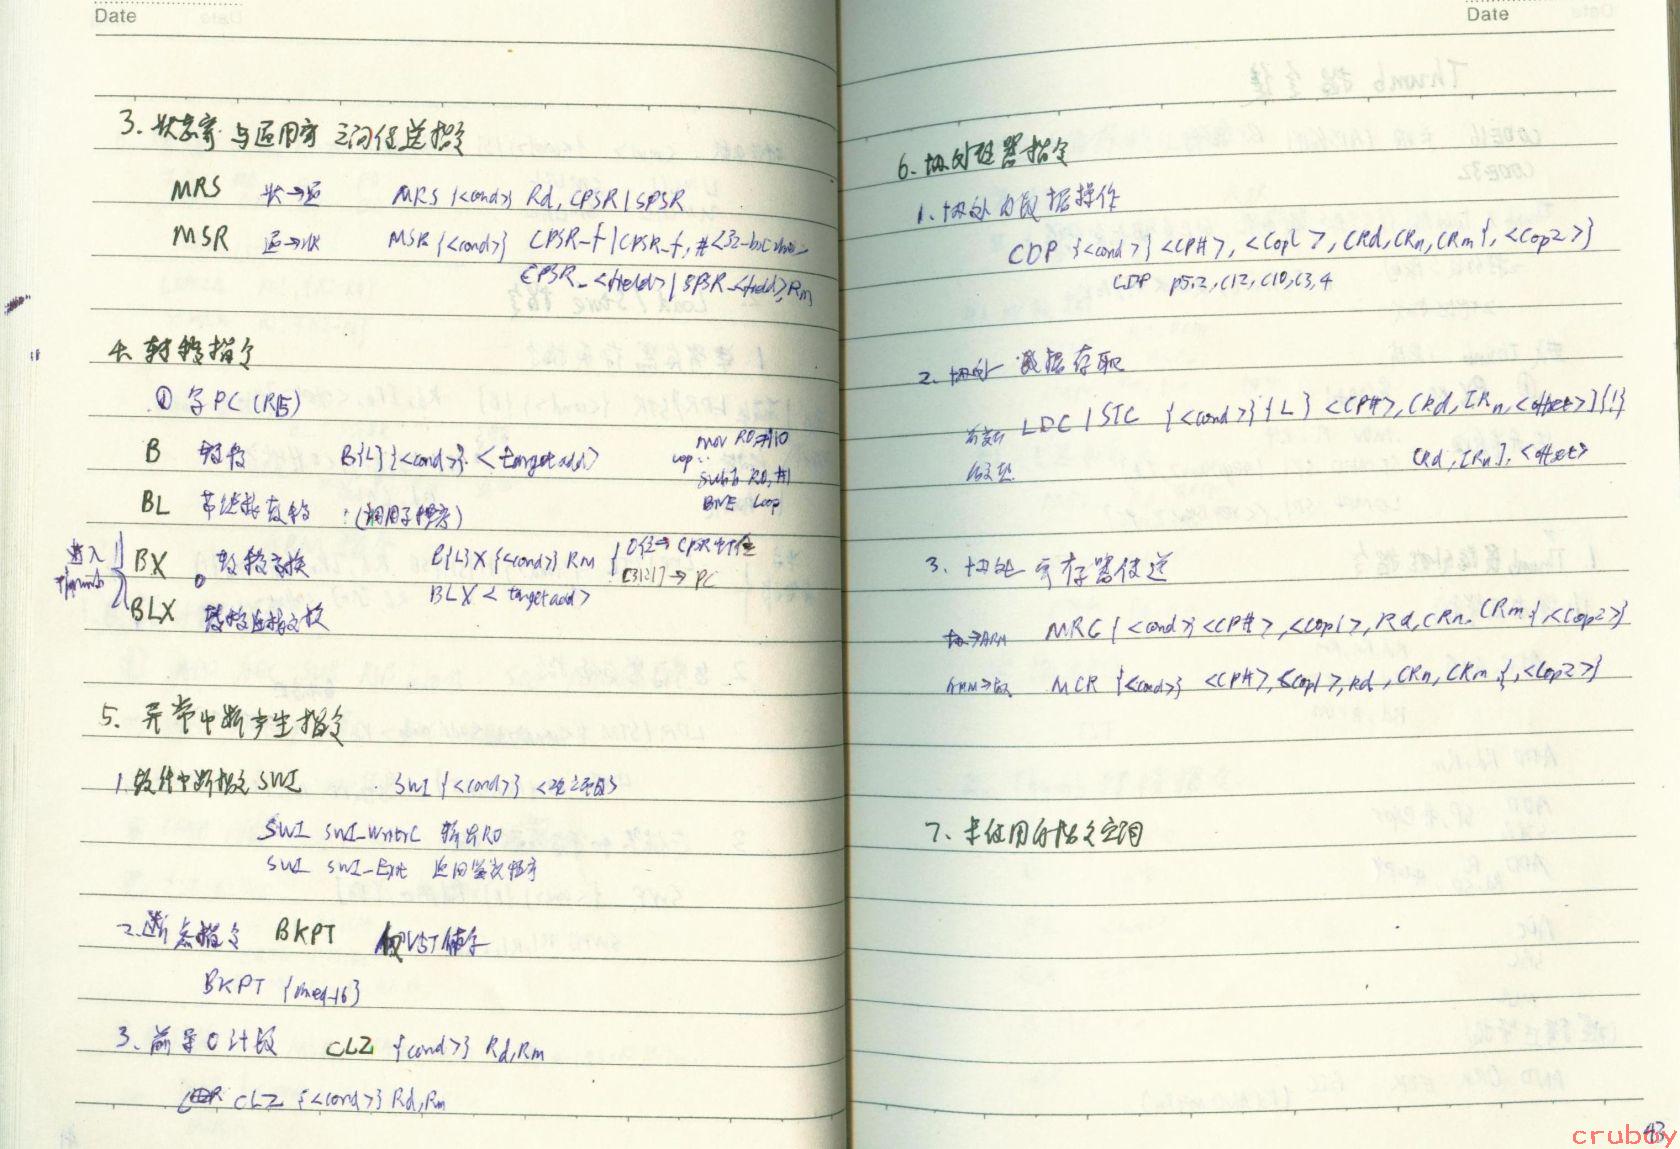 Date
3. 状态寄与通用寄之间传送指令
MRS 状→通 MRS {<cond>} Rd, CPSR|SPSR
MSR 通→状 MSR {<cond>} CPSR_f|CPSR_f, #<32-bit
CPSR_<field>|SPSR_<field>, Rm
4. 转移指令
① 字PC(R15)
B 转移 B{L}{<cond>} <targetadd>
mov R0 #10
Loop
subs R0, #1
BNE Loop
BL 带链接转移 (调用子程序)
进入
thumb
BX 转移交换 B{L}X {<cond>} Rm
0位→CPSR中T位
[31:1]→PC
BLX 转移连接交换 BLX <targetadd>
5. 异常中断产生指令
1. 软件中断指令 SWI SWI {<cond>} <24立即数>
SWI SWI_WriteC 输出R0
SWI SWI_Exit 返回 程序
2. 断点指令 BKPT 仅V5T
BKPT {immed_16}
3. 前导0计数 CLZ {cond>} Rd,Rm
CLZ {<cond>} Rd,Rm
Date
6. 协处理器指令
1. 协处 内数据操作
CDP {<cond>} <CP#>, <Cop1>, CRd, CRn, CRm{, <Cop2>}
CDP p5,2,C12,C10,C3,4
2. 协处 数据存取
前变址 LDC|STC {<cond>}{L} <CP#>, CRd, [Rn, <offset>]{!}
后变址 CRd, [Rn], <offset>
3. 协处 寄存器传送
协→ARM MRC {<cond>} <CP#>, <Cop1>, Rd, CRn, CRm{, <Cop2>}
ARM→协 MCR {<cond>} <CP#>, <Cop1>, Rd, CRn, CRm{, <Cop2>}
7. 未使用的指令空间
43
cruboy